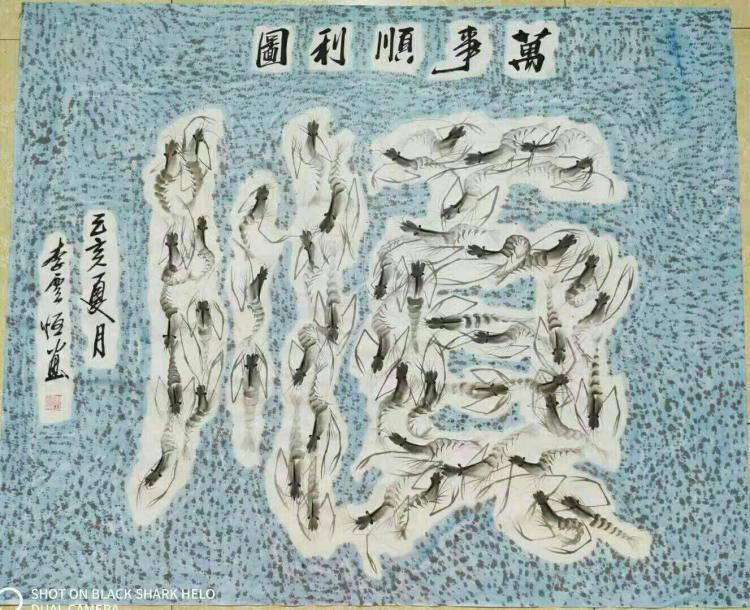 圖利順事萬
順
乙亥夏月
李雲恒畫
SHOT ON BLACK SHARK HELO
DUAL CAMERA